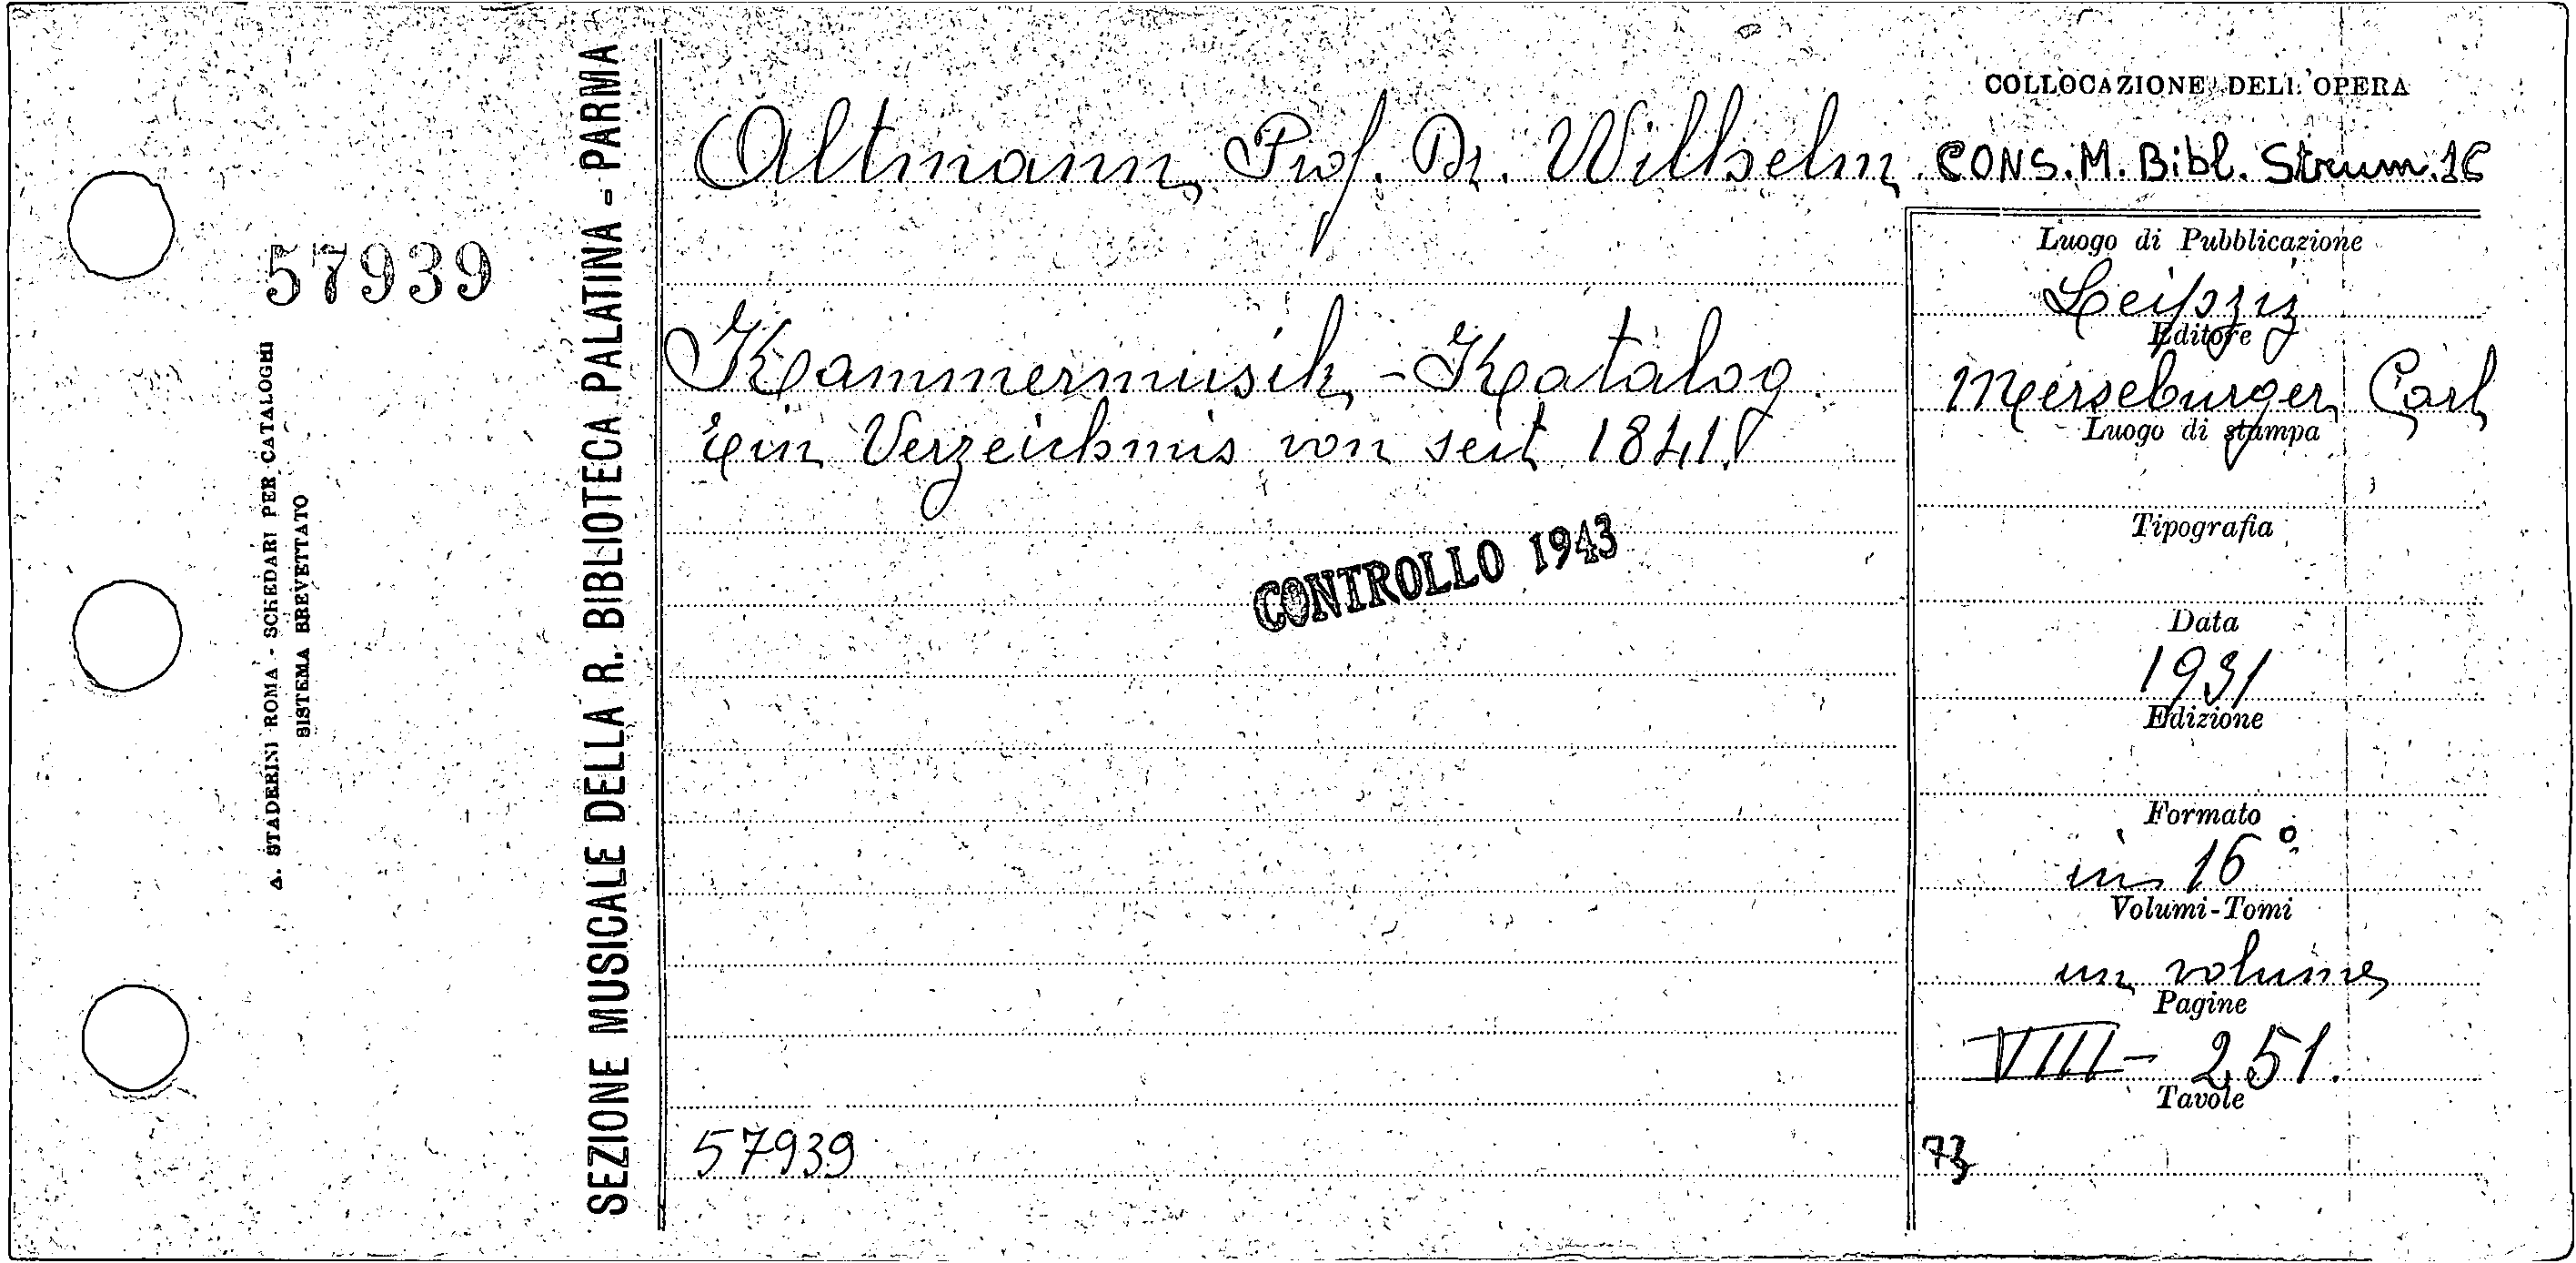 57939
A. STADERINI ROMA - SCHEDARI PER CATALOGHI
SISTEMA BREVETTATO
SEZIONE MUSICALE DELLA R. BIBLIOTECA PALATINA - PARMA
Altmann, Prof. Dr. Wilhelm
Kammermusik-Katalog
Ein Verzeichnis von seit 1841
CONTROLLO 1943
57939
COLLOCAZIONE DELL'OPERA
CONS. M. Bibl. Strum.
Luogo di Pubblicazione
Leipzig
Editore
Merseburger Carl
Luogo di stampa
Tipografia
Data
1931
Edizione
Formato
in 16°
Volumi-Tomi
un volume
Pagine
VIII - 251.
Tavole
73